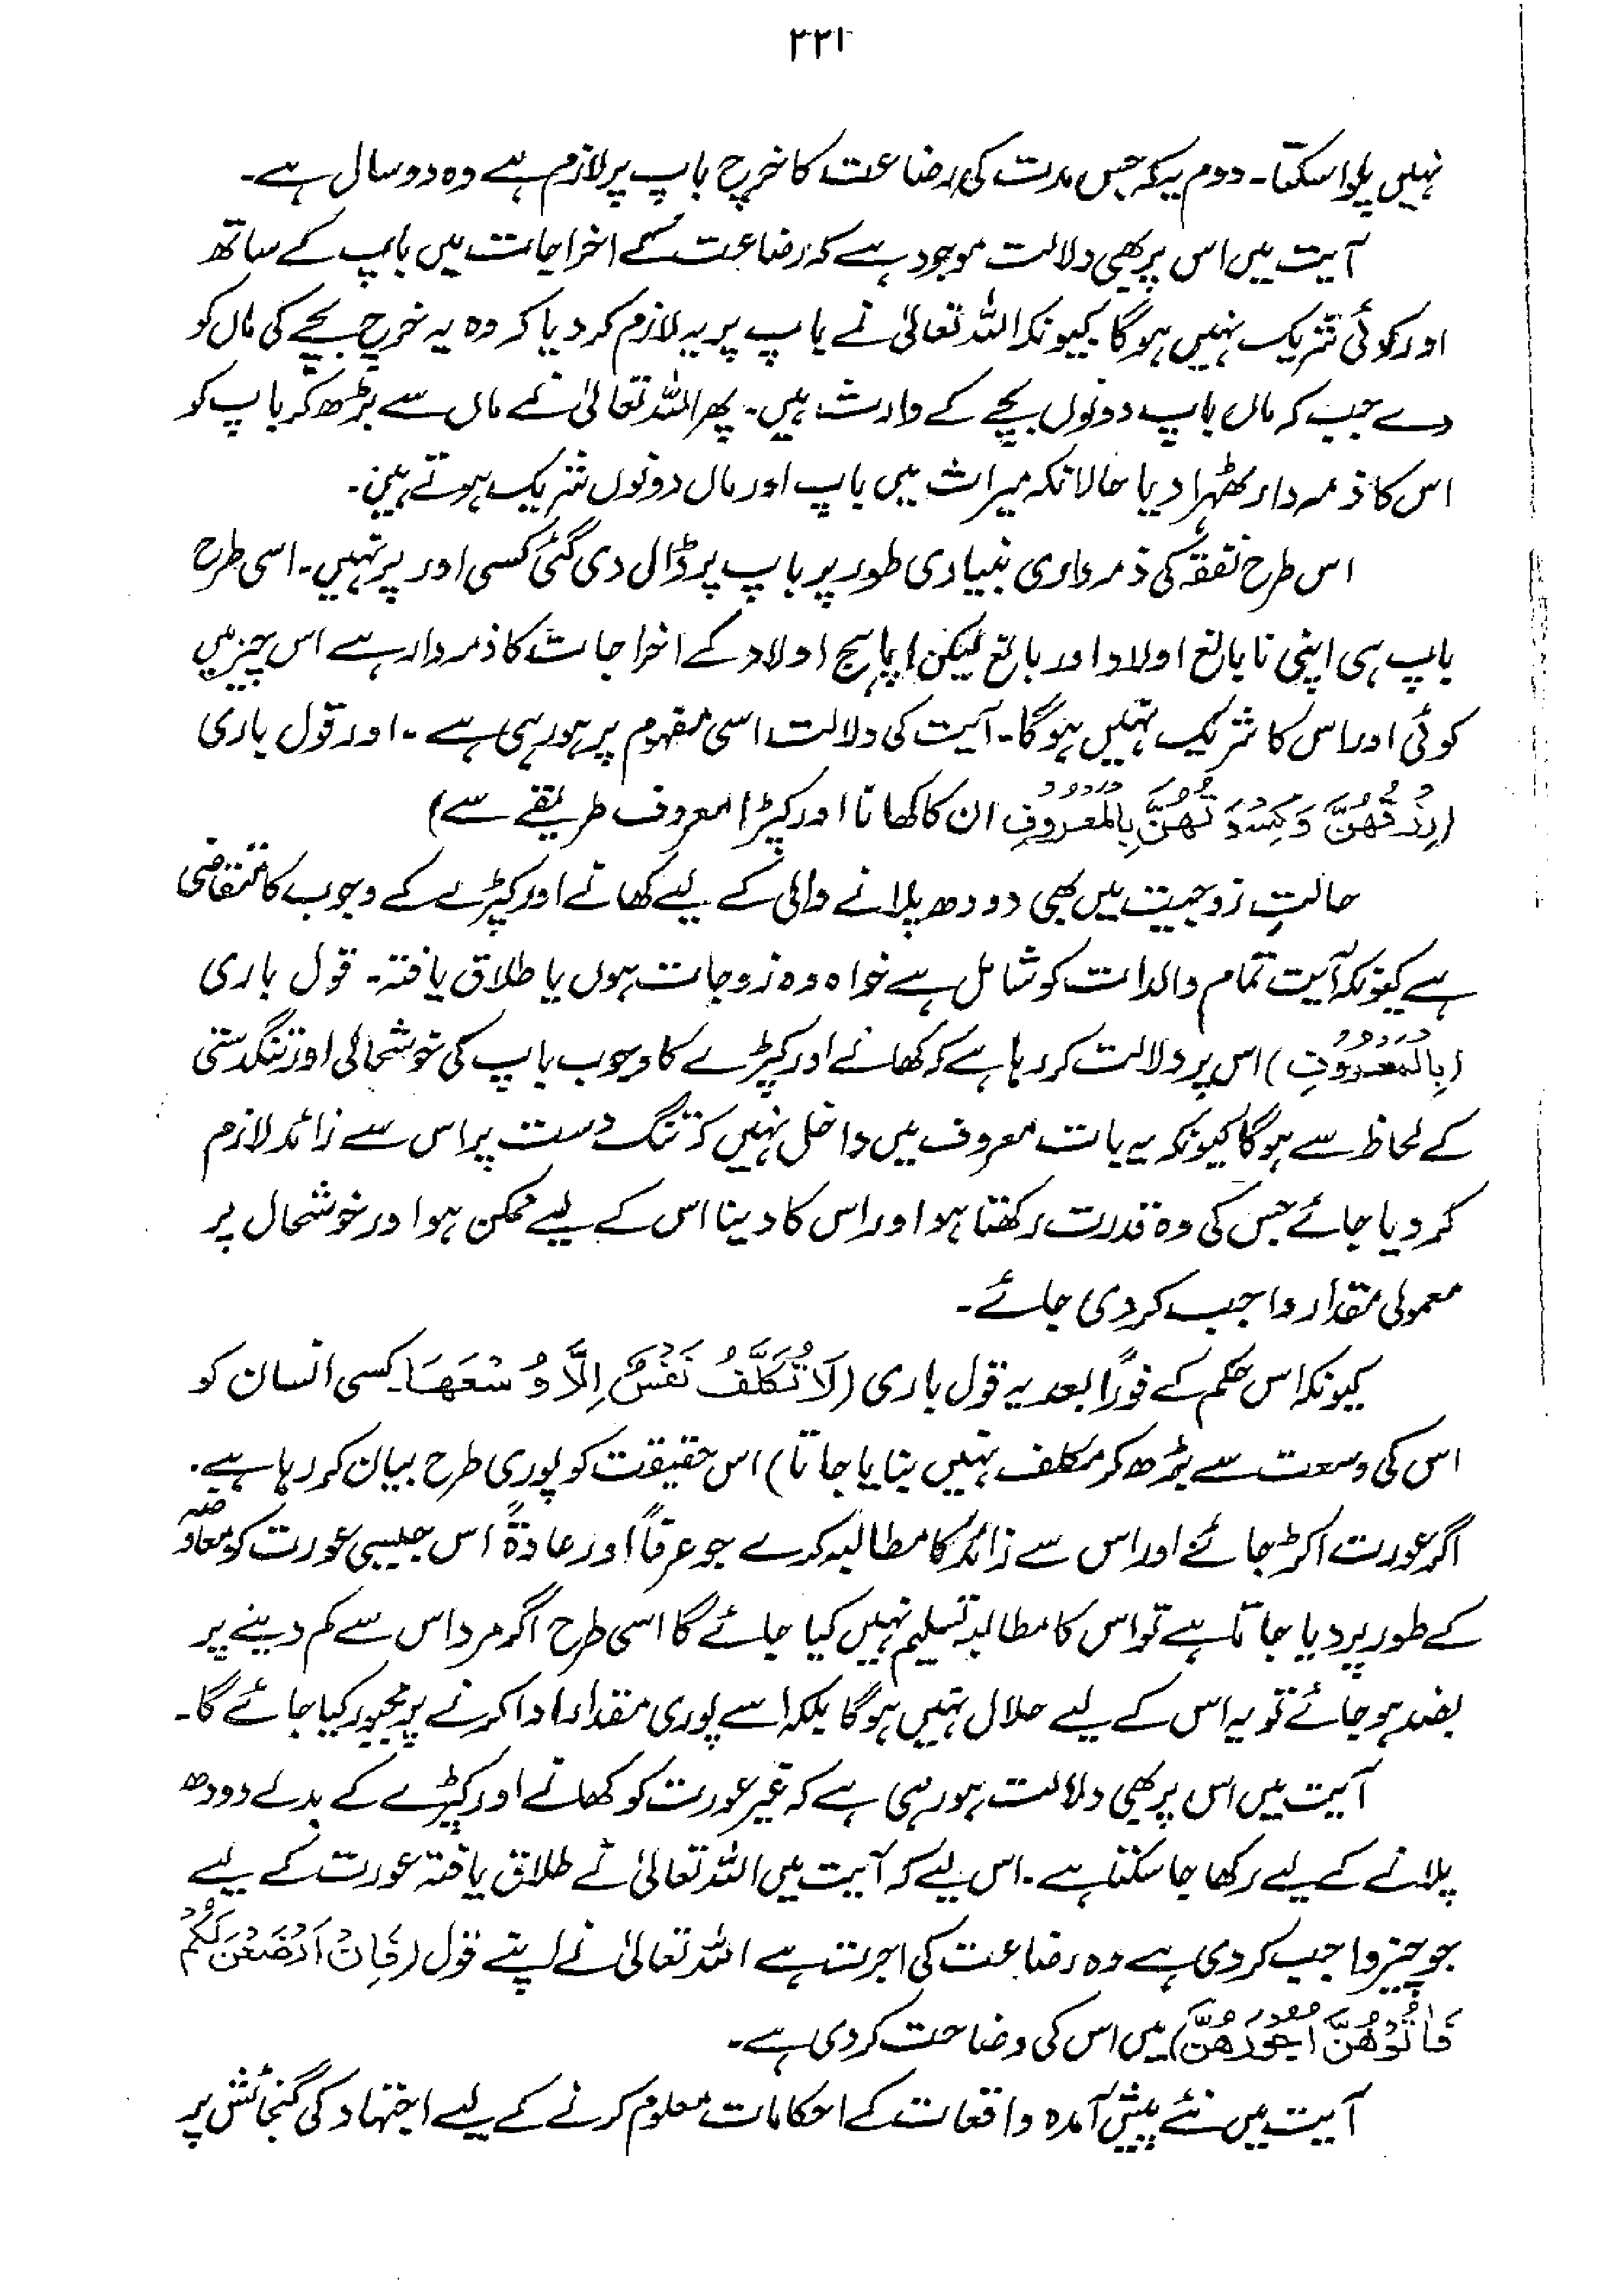 ۲۲۱
نہیں پلوا سکتا۔ دوم یہ کہ جس مدت کی رضاعت کا خرچ باپ پر لازم ہے وہ دو سال ہے۔
آیت میں اس پر بھی دلالت موجود ہے کہ رضاعت کے اخراجات میں باپ کے ساتھ
اور کوئی شریک نہیں ہوگا کیونکہ اللہ تعالیٰ نے باپ پر یہ لازم کر دیا کہ وہ یہ خرچ بچے کی ماں کو
دے جب کہ ماں باپ دونوں بچے کے وارث ہیں۔ پھر اللہ تعالیٰ نے ماں سے بڑھ کر باپ کو
اس کا ذمہ دار ٹھہرا دیا حالانکہ میراث میں باپ اور ماں دونوں شریک ہوتے ہیں۔
اس طرح نفقہ کی ذمہ داری بنیادی طور پر باپ پر ڈال دی گئی کسی اور پر نہیں۔ اسی طرح
باپ ہی اپنی نابالغ اولاد اور بالغ لیکن اپاہج اولاد کے اخراجات کا ذمہ دار ہے اس چیز میں
کوئی اور اس کا شریک نہیں ہوگا۔ آیت کی دلالت اسی مفہوم پر ہو رہی ہے۔ اور قول باری
(رِزْقُهُنَّ وَكِسْوَتُهُنَّ بِالْمَعْرُوفِ ان کا کھانا اور کپڑا معروف طریقے سے)
حالتِ زوجیت میں بھی دودھ پلانے والی کے لیے کھانے اور کپڑے کے وجوب کا متقاضی
ہے کیونکہ آیت تمام والدات کو شامل ہے خواہ وہ زوجات ہوں یا طلاق یافتہ۔ قول باری
(بِالْمَعْرُوفِ) اس پر دلالت کر رہا ہے کہ کھانے اور کپڑے کا وجوب باپ کی خوشحالی اور تنگدستی
کے لحاظ سے ہوگا کیونکہ یہ بات معروف میں داخل نہیں کہ تنگ دست پر اس سے زائد لازم
کر دیا جائے جس کی وہ قدرت رکھتا ہو اور اس کا دینا اس کے لیے ممکن ہو اور خوشحال پر
معمولی مقدار واجب کر دی جائے۔
کیونکہ اس حکم کے فوراً بعد یہ قول باری (لَا تُكَلَّفُ نَفْسٌ اِلَّا وُسْعَهَا۔ کسی انسان کو
اس کی وسعت سے بڑھ کر مکلف نہیں بنایا جاتا) اس حقیقت کو پوری طرح بیان کر رہا ہے۔
اگر عورت اکڑ جائے اور اس سے زائد کا مطالبہ کرے جو عرفاً اور عادۃً اس جیسی عورت کو معاوضہ
کے طور پر دیا جاتا ہے تو اس کا مطالبہ تسلیم نہیں کیا جائے گا اسی طرح اگر مرد اس سے کم دینے پر
بضد ہو جائے تو یہ اس کے لیے حلال نہیں ہوگا بلکہ اسے پوری مقدار ادا کرنے پر مجبور کیا جائے گا۔
آیت میں اس پر بھی دلالت ہو رہی ہے کہ غیر عورت کو کھانے اور کپڑے کے بدلے دودھ
پلانے کے لیے رکھا جا سکتا ہے۔ اس لیے کہ آیت میں اللہ تعالیٰ نے طلاق یافتہ عورت کے لیے
جو چیز واجب کر دی ہے وہ رضاعت کی اجرت ہے اللہ تعالیٰ نے اپنے قول (فَاِنْ اَرْضَعْنَ لَكُمْ
فَاٰتُوْهُنَّ اُجُوْرَهُنَّ) میں اس کی وضاحت کر دی ہے۔
آیت میں نئے پیش آمدہ واقعات کے احکامات معلوم کرنے کے لیے اجتہاد کی گنجائش پر